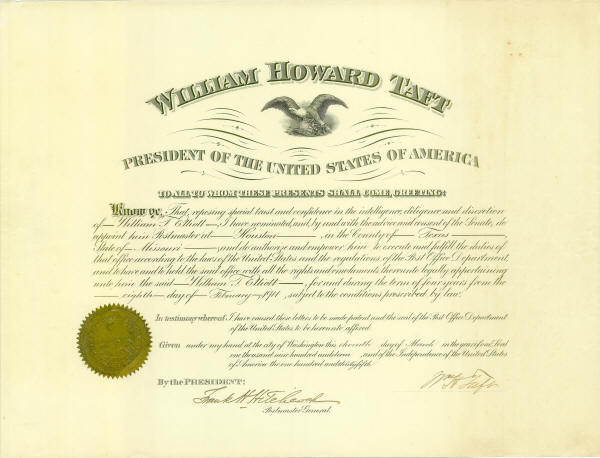 WILLIAM HOWARD TAFT
PRESIDENT OF THE UNITED STATES OF AMERICA
TO ALL TO WHOM THESE PRESENTS SHALL COME, GREETING:
Know ye, That, reposing special trust and confidence in the intelligence, diligence and discretion
of William T. Elliott, I have nominated, and, by and with the advice and consent of the Senate, do
appoint him Postmaster at Houston, in the County of Texas
State of Missouri, and do authorize and empower him to execute and fulfill the duties of
that office according to the laws of the United States and the regulations of the Post Office Department,
and to have and to hold the said office, with all the rights and emoluments thereunto legally appertaining
unto him the said William T. Elliott, for and during the term of four years from the
eighth day of February, 1911, subject to the conditions prescribed by law.
In testimony whereof I have caused these letters to be made patent and the seal of the Post Office Department
of the United States to be hereunto affixed.
Given under my hand at the city of Washington this eleventh day of March in the year of our Lord
one thousand nine hundred and eleven, and of the Independence of the United States
of America the one hundred and thirty-fifth.
By the PRESIDENT:
Wm H Taft
Frank H. Hitchcock
Postmaster General.